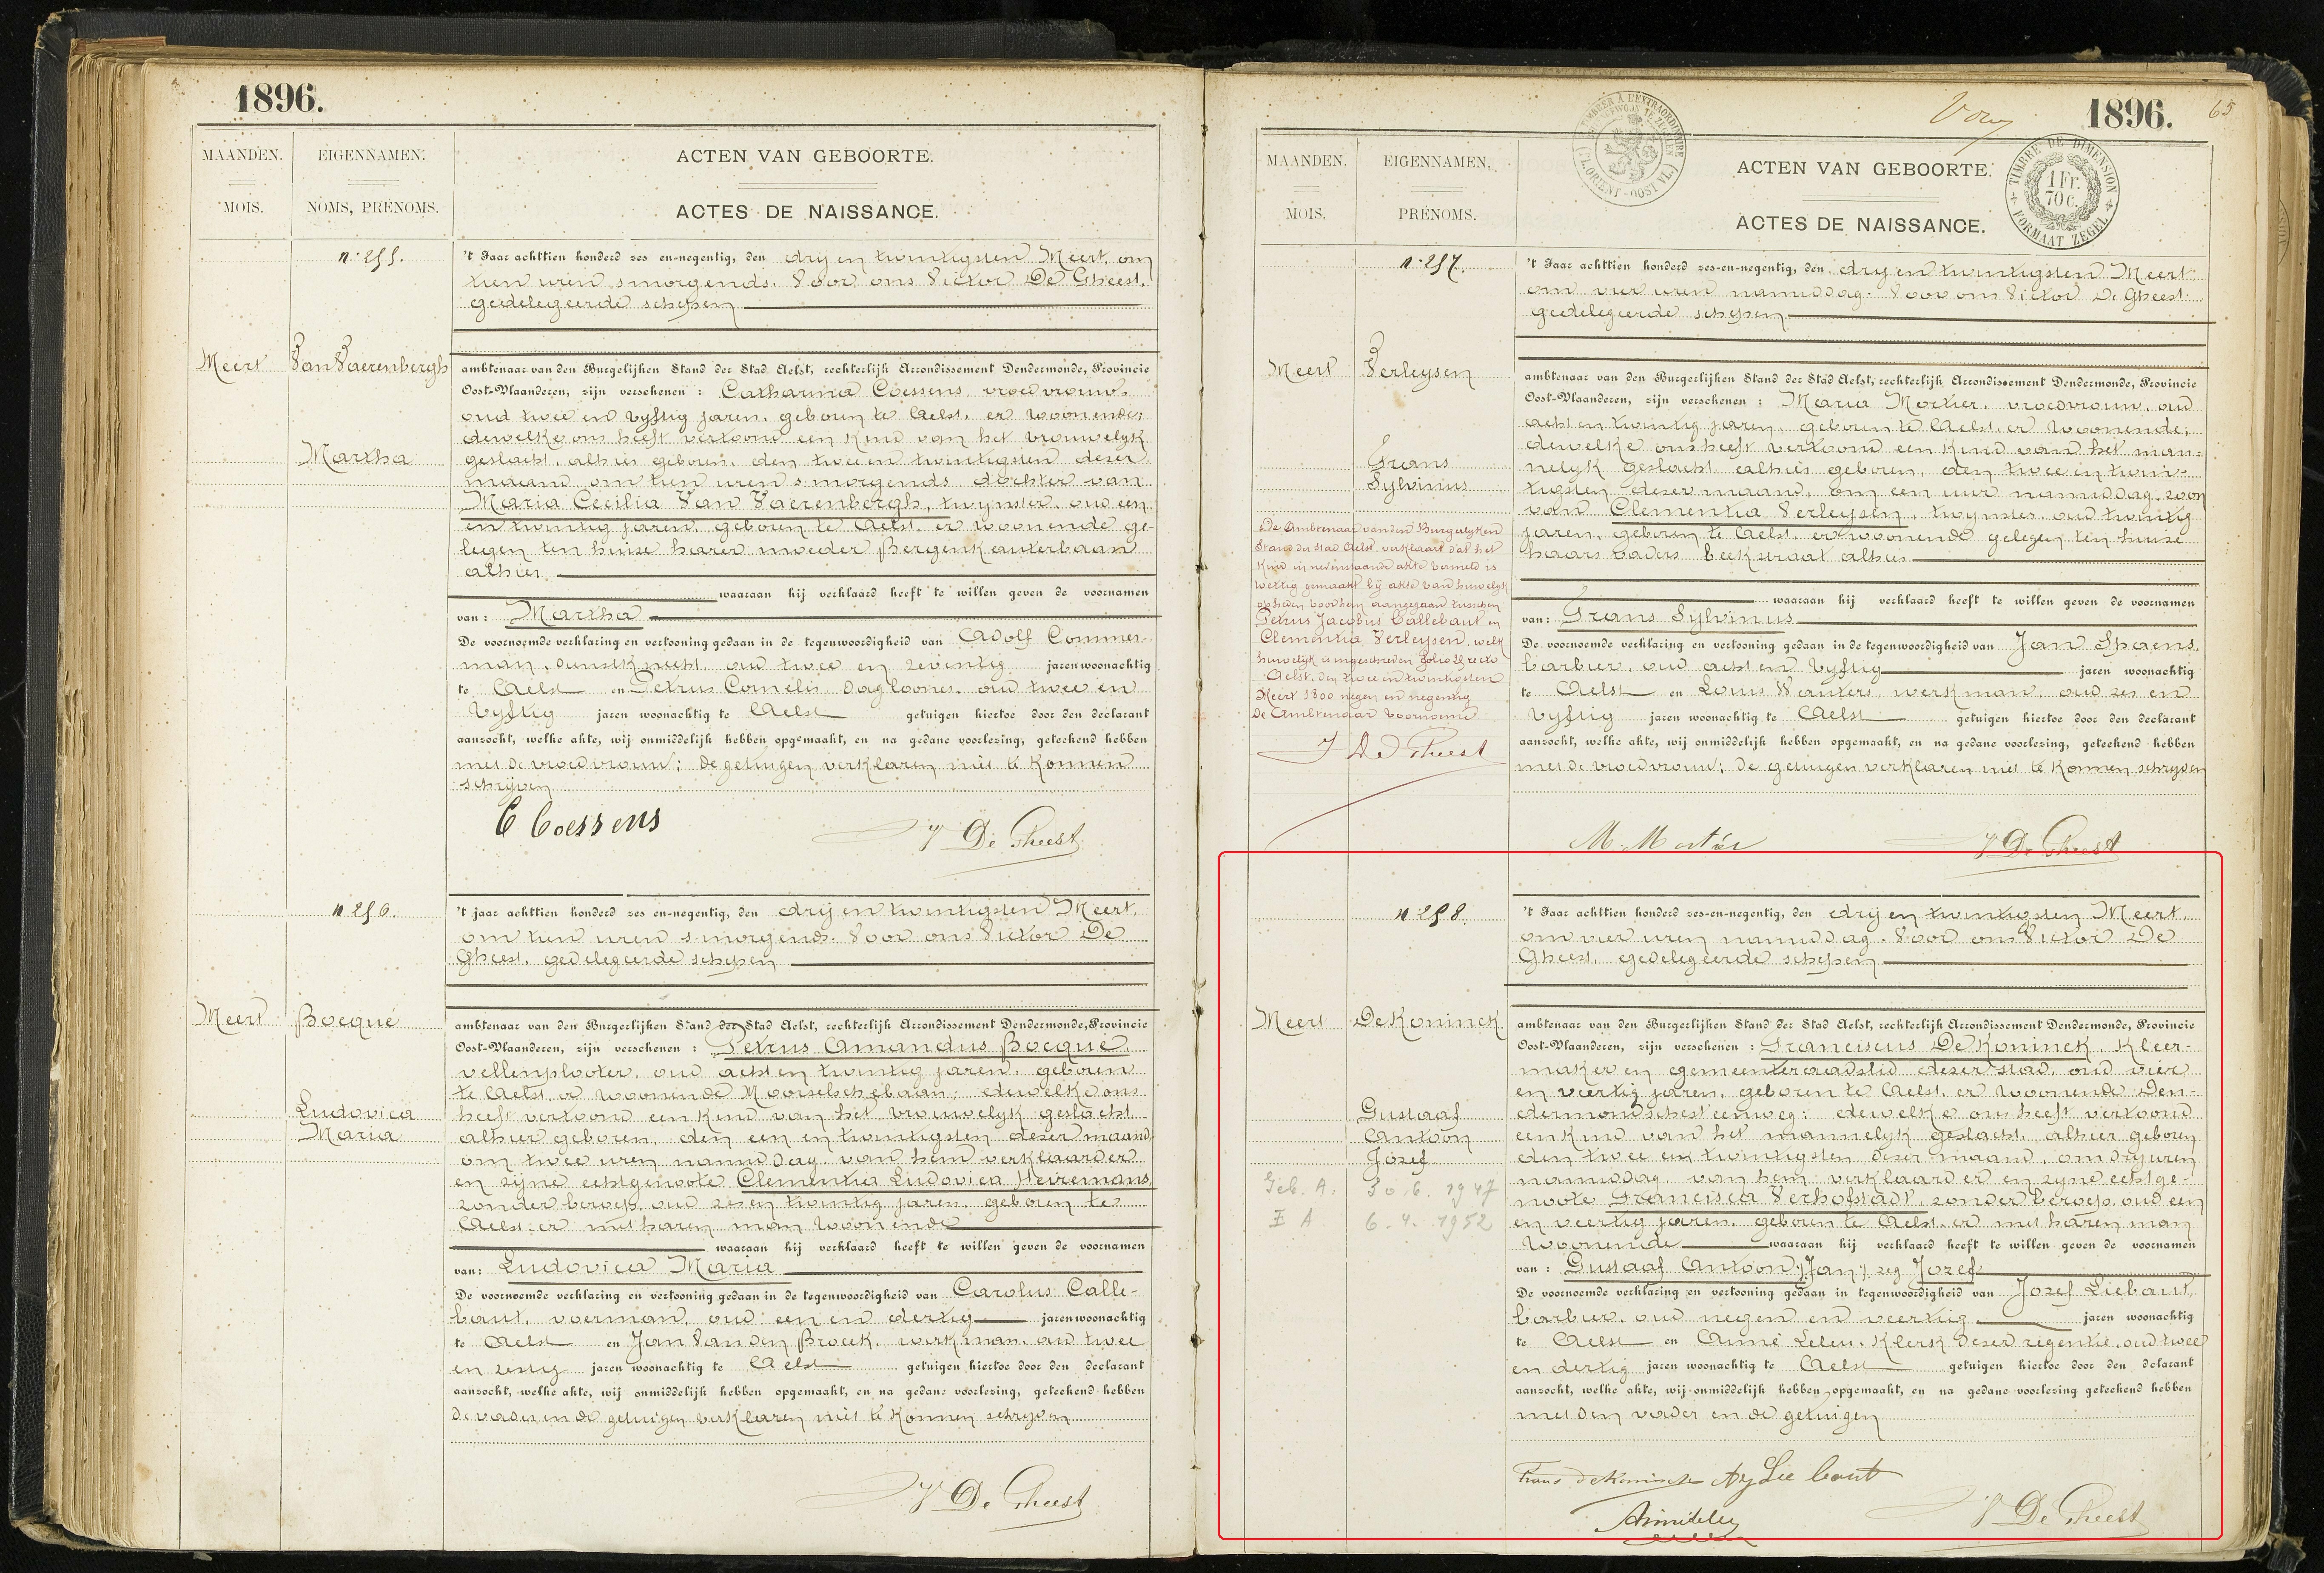 1896.
MAANDEN.
MOIS.
EIGENNAMEN.
NOMS, PRÉNOMS.
ACTEN VAN GEBOORTE.
ACTES DE NAISSANCE.
n. 255.
't Jaar achttien honderd zes en-negentig, den drij en twintigsten Meert, om
tien uren smorgends. Voor ons Victor De Gheest.
gedelegeerde schepen
Meert
Van Vaerenbergh
Martha
ambtenaar van den Burgerlijken Stand der Stad Aelst, rechterlijk Arrondissement Dendermonde, Provincie
Oost-Vlaanderen, zijn verschenen : Catharina Coessens vroedvrouw.
oud twee en vyftig jaren, geboren te Aelst, er woonende;
dewelke ons heeft vertoond een kind van het vrouwelyk
geslacht, alhier geboren, den twee en twintigsten dezer
maand om tien uren s'morgends dochter van
Maria Cecilia Van Vaerenbergh, twynster, oud een
en twintig jaren, geboren te Aelst, er woonende ge-
legen ten huize harer moeder Bergenkauterbaan
alhier
waaraan hij verklaard heeft te willen geven de voornamen
van : Martha
De voornoemde verklaring en vertooning gedaan in de tegenwoordigheid van Adolf Commer-
man, dienstknecht, oud twee en zeventig jaren woonachtig
te Aelst en Petrus Cornelis daglooner, oud twee en
vyftig jaren woonachtig te Aelst getuigen hiertoe door den declarant
aanzocht, welke akte, wij onmiddelijk hebben opgemaakt, en na gedane voorlezing, geteekend hebben
met de vroedvrouw; de getuigen verklaren niet te konnen
schrijven
C Coessens
V De Gheest
n 256.
't jaar achttien honderd zes en-negentig, den drij en twintigsten Meert,
om tien uren s'morgends. Voor ons Victor De
Gheest, gedelegeerde schepen
Meert
Bocqué
Ludovica
Maria
ambtenaar van den Burgerlijken Stand der Stad Aelst, rechterlijk Arrondissement Dendermonde, Provincie
Oost-Vlaanderen, zijn verschenen : Petrus Amandus Bocqué
vellenplooter, oud acht en twintig jaren, geboren
te Aelst, er woonende Moorselschebaan; dewelke ons
heeft vertoond een kind van het vrouwelyk geslacht
alhier geboren, den een en twintigsten dezer maand
om twee uren namiddag van hem verklaarder
en zijne echtgenoote Clementia Ludovica Heiremans,
zonder beroep, oud zes en twintig jaren geboren te
Aelst er met haren man woonende
waaraan hij verklaard heeft te willen geven de voornamen
van : Ludovica Maria
De voornoemde verklaring en vertooning gedaan in de tegenwoordigheid van Carolus Calle-
baut, voerman, oud een en dertig jaren woonachtig
te Aelst en Jan Van den Broeck, werkman, oud twee
en zestig jaren woonachtig te Aelst getuigen hiertoe door den declarant
aanzocht, welke akte, wij onmiddelijk hebben opgemaakt, en na gedane voorlezing, geteekend hebben
De vader en de getuigen verklaren niet te konnen schryven
V De Gheest
Voruj
1896.
65
TIMBRE DE DIMENSION
1 Fr.
70 c.
FORMAAT ZEGEL
MAANDEN.
MOIS.
EIGENNAMEN.
PRÉNOMS.
ACTEN VAN GEBOORTE.
ACTES DE NAISSANCE.
n. 257.
't Jaar achttien honderd zes-en-negentig, den drij en twintigsten Meert
om vier uren namiddag. Voor ons Victor De Gheest
gedelegeerde schepen
Meert
Verleysen
Frans
Sylvinus
ambtenaar van den Burgerlijken Stand der Stad Aelst, rechterlijk Arrondissement Dendermonde, Provincie
Oost-Vlaanderen, zijn verschenen : Maria Mortier, vroedvrouw, oud
acht en twintig jaren, geboren te Aelst, er woonende;
dewelke ons heeft vertoond een kind van het man-
nelyk geslacht alhier geboren, den twee en twin-
tigsten dezer maand, om een uur namiddag, zoon
van Clementia Verleysen, twynster, oud twintig
jaren, geboren te Aelst, er woonende gelegen ten huize
haars vaders beekstraat alhier
De Ambtenaar van den Burgerlyken
Stand der stad Aelst, verklaart dat het
kind in nevenstaande akte vermeld is
wettig gemaakt bij akte van huwelyk
op heden voor hem aangegaan tusschen
Petrus Jacobus Callebaut en
Clementia Verleysen, welk
huwelyk is ingeschreven folio 25 recto
Aelst, den twee en twintigsten
Meert 1800 negen en negentig
De Ambtenaar voornoemd
V De Gheest
waaraan hij verklaard heeft te willen geven de voornamen
van : Frans Sylvinus
De voornoemde verklaring en vertooning gedaan in de tegenwoordigheid van Jan Spaens,
barbier, oud acht en vyftig jaren woonachtig
te Aelst en Louis Wauters, werkman, oud zes en
vyftig jaren woonachtig te Aelst getuigen hiertoe door den declarant
aanzocht, welke akte, wij onmiddelijk hebben opgemaakt, en na gedane voorlezing, geteekend hebben
met de vroedvrouw; de getuigen verklaren niet te konnen schryven
M. Mortier
V De Gheest
n 258
't Jaar achttien honderd zes-en-negentig, den drij en twintigsten Meert
om vier uren namiddag. Voor ons Victor De
Gheest, gedelegeerde schepen
Meert
De Koninck
Gustaaf
Antoon
Jozef
Geb. A. 30.6.1947
I A 6.4.1952
ambtenaar van den Burgerlijken Stand der Stad Aelst, rechterlijk Arrondissement Dendermonde, Provincie
Oost-Vlaanderen, zijn verschenen : Franciscus De Koninck, kleer-
maker en gemeenteraadslid dezer stad, oud vier
en veertig jaren, geboren te Aelst, er woonende Den-
dermondschesteenweg; dewelke ons heeft vertoond
een kind van het mannelyk geslacht, alhier geboren
den twee en twintigsten dezer maand, om drij uren
namiddag, van hem verklaarder en zijne echtge-
noote Francisca Verhofstadt, zonder beroep, oud een
en veertig jaren, geboren te Aelst, er met haren man
woonende waaraan hij verklaard heeft te willen geven de voornamen
van : Gustaaf Antoon (Jan) zeg Jozef
De voornoemde verklaring en vertooning gedaan in tegenwoordigheid van Jozef Liebaut,
barbier, oud negen en veertig jaren woonachtig
te Aelst en Aimé Leleu, klerk dezer regentie, oud twee
en dertig jaren woonachtig te Aelst getuigen hiertoe door den declarant
aanzocht, welke akte, wij onmiddelijk hebben opgemaakt, en na gedane voorlezing geteekend hebben
met den vader en de getuigen
Frans De Koninck Liebaut
V De Gheest